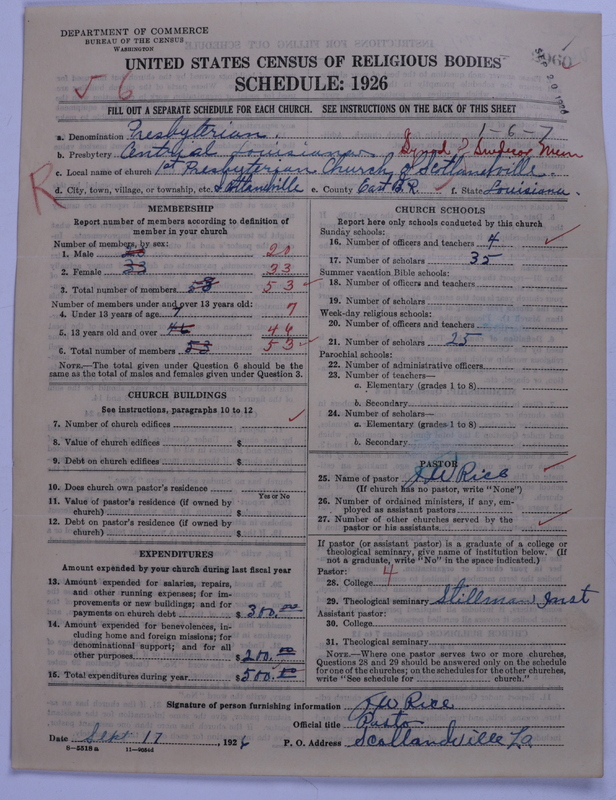 DEPARTMENT OF COMMERCE
BUREAU OF THE CENSUS
WASHINGTON
SEP 20 1926
UNITED STATES CENSUS OF RELIGIOUS BODIES
5 6
SCHEDULE: 1926
FILL OUT A SEPARATE SCHEDULE FOR EACH CHURCH. SEE INSTRUCTIONS ON THE BACK OF THIS SHEET
1-6-7
a. Denomination Presbyterian.
b. Presbytery Central Louisiana Synod of Snedecor Mem
c. Local name of church 1st Presbyterian Church of Scotlandville
R
d. City, town, village, or township, etc. Scotlandville e. County East B.R. f. State Louisiana.
MEMBERSHIP
Report number of members according to definition of member in your church
Number of members, by sex:
1. Male 20 20
2. Female 33 33
3. Total number of members 53 53
Number of members under and over 13 years old:
4. Under 13 years of age 7 7
5. 13 years old and over 46 46
6. Total number of members 53 53
NOTE.—The total given under Question 6 should be same as the total of males and females given under Question 3.
CHURCH BUILDINGS
See instructions, paragraphs 10 to 12
7. Number of church edifices
8. Value of church edifices $
9. Debt on church edifices $
10. Does church own pastor's residence
Yes or No
11. Value of pastor's residence (if owned by church) $
12. Debt on pastor's residence (if owned by church) $
EXPENDITURES
Amount expended by your church during last fiscal year
13. Amount expended for salaries, repairs, and other running expenses; for improvements or new buildings; and for payments on church debt $ 300.00
14. Amount expended for benevolences, including home and foreign missions; for denominational support; and for all other purposes $ 200.00
15. Total expenditures during year $ 500.00
CHURCH SCHOOLS
Report here only schools conducted by this church
Sunday schools:
16. Number of officers and teachers 4
17. Number of scholars 35
Summer vacation Bible schools:
18. Number of officers and teachers
19. Number of scholars
Week-day religious schools:
20. Number of officers and teachers
21. Number of scholars 25
Parochial schools:
22. Number of administrative officers
23. Number of teachers—
a. Elementary (grades 1 to 8)
b. Secondary
24. Number of scholars—
a. Elementary (grades 1 to 8)
b. Secondary
PASTOR
25. Name of pastor J W Rice
(If church has no pastor, write "None")
26. Number of ordained ministers, if any, employed as assistant pastors
27. Number of other churches served by the pastor or his assistants
If pastor (or assistant pastor) is a graduate of a college or theological seminary, give name of institution below. (If not a graduate, write "No" in the space indicated.)
Pastor:
28. College 4
29. Theological seminary Stillman Inst
Assistant pastor:
30. College
31. Theological seminary
NOTE.—Where one pastor serves two or more churches, Questions 28 and 29 should be answered only on the schedule for one of the churches; on the schedules for the other churches, write "See schedule for church."
Signature of person furnishing information J W Rice
Official title Pastor
Date Sept 17, 1926 P. O. Address Scotlandville La
8-5518 a 11-9056d